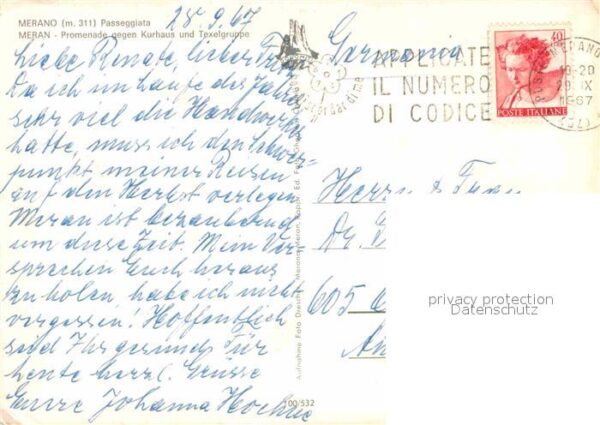 MERANO (m. 311) Passeggiata
MERAN - Promenade gegen Kurhaus und Texelgruppe
28.9.67
Liebe Renate, lieber
Da ich im Laufe des Jahres
sehr viel die Handwerker
hatte, muss ich den Schwer-
punkt meiner Reisen
auf den Herbst verlegen.
Meran ist bezaubernd
um diese Zeit. Mein Ver-
sprechen Euch heraus
zu holen, habe ich nicht
vergessen! Hoffentlich
seid Ihr gesund. Für
heute herzl. Grüsse
Eure Johanna
Germania
APPLICATE
IL NUMERO
DI CODICE
40
POSTE ITALIANE
MERANO
10-20
29.IX
1967
Herrn & Frau
Dr.
605
An
privacy protection
Datenschutz
100/532